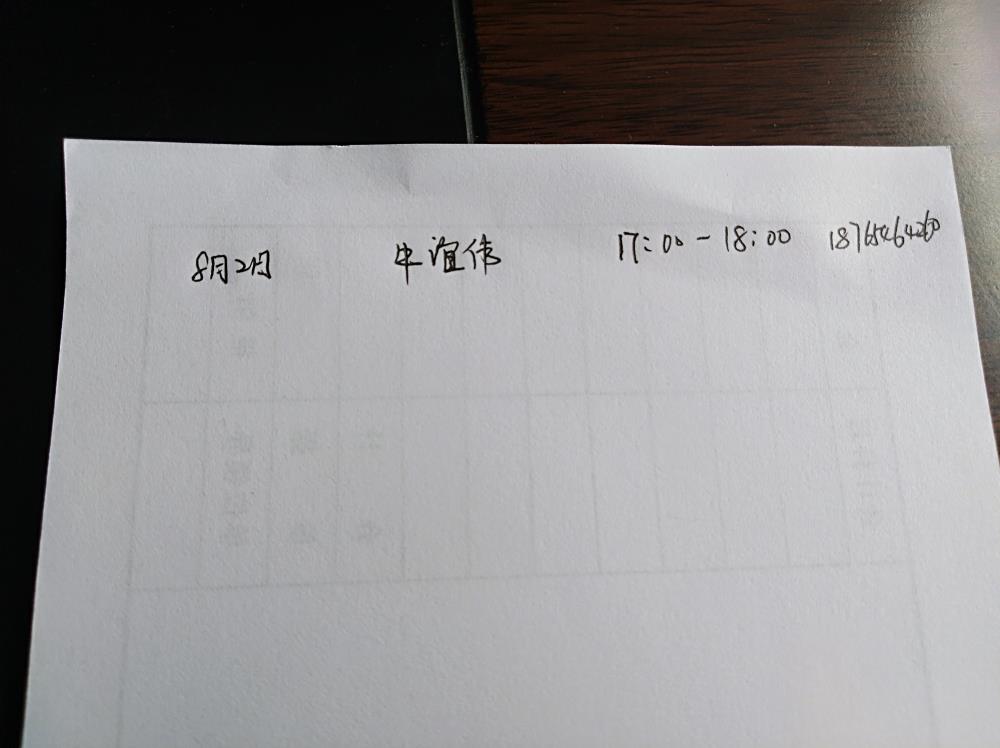 8月2日 牛谊伟 17:00-18:00 18765464260